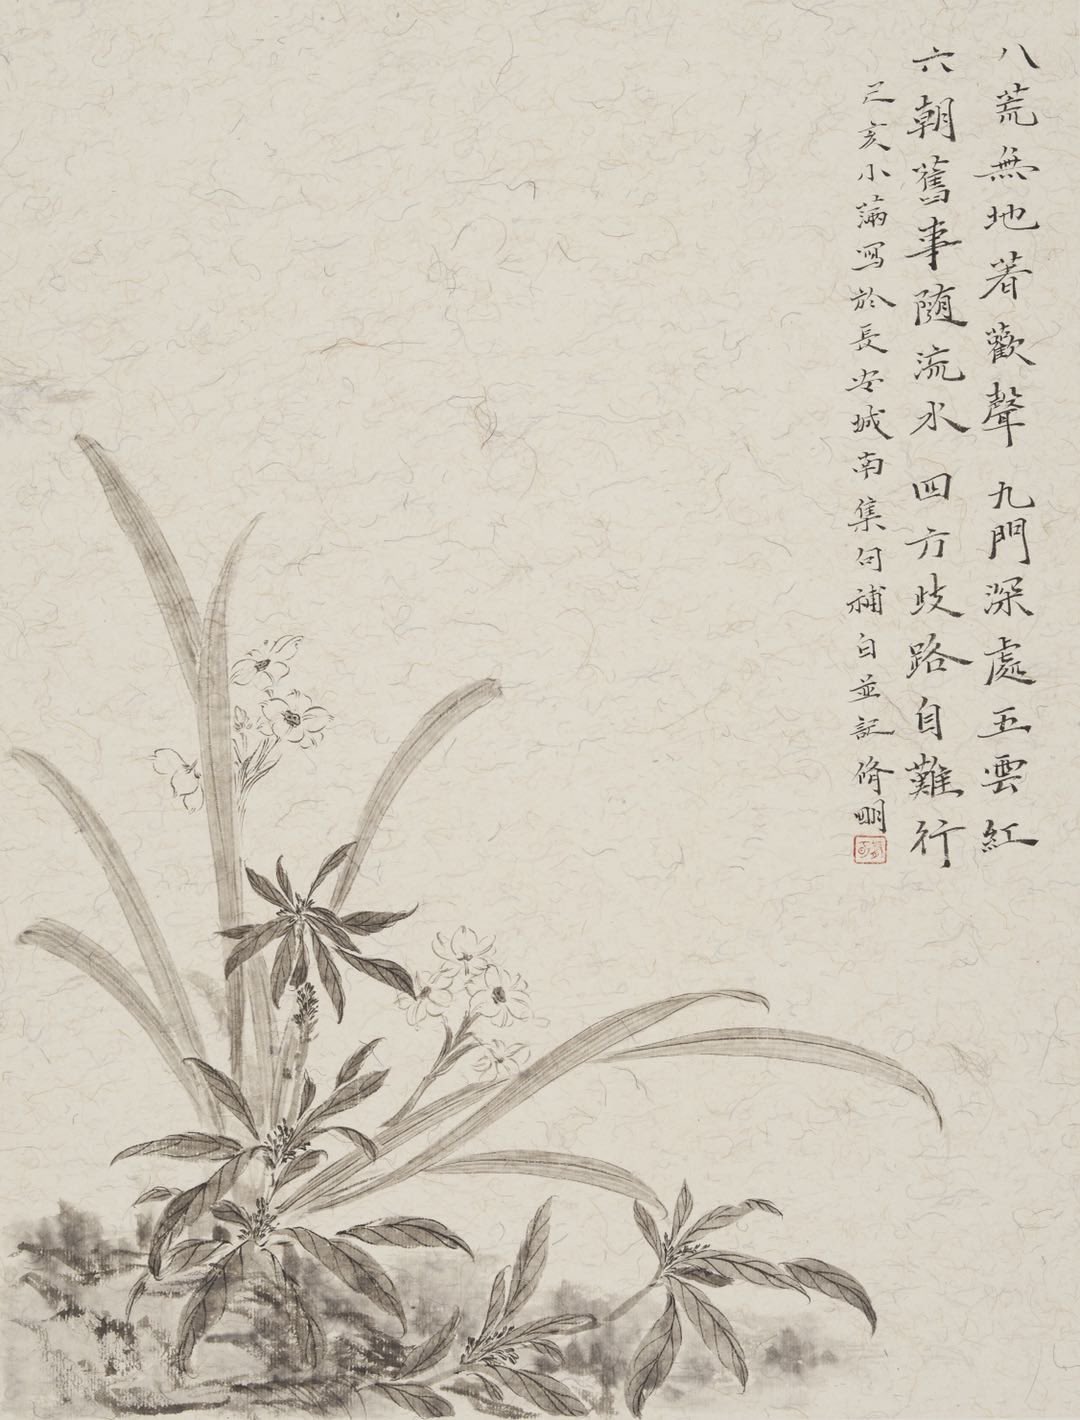 八荒無地著歡聲 九門深處五雲紅
六朝舊事隨流水 四方歧路自難行
己亥小滿寫於長安城南集句補白並記脩明